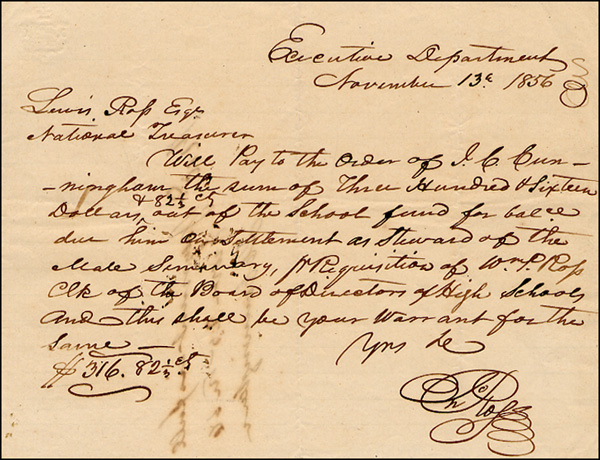 Executive Department
November 13th 1856
Lewis Ross Esqr
National Treasurer
Will Pay to the order of J. C. Cun-
-ningham the sum of Three Hundred & Sixteen
& 82½ cts
Dollars, out of the School fund for balce
due him on settlement as Steward of the
Male Seminary, pr Requisition of Wm. P. Ross
Clk of the Board of Directors of High Schools
and this shall be your Warrant for the
same —
Yrs &c
$316.82½ cts
Jno Ross